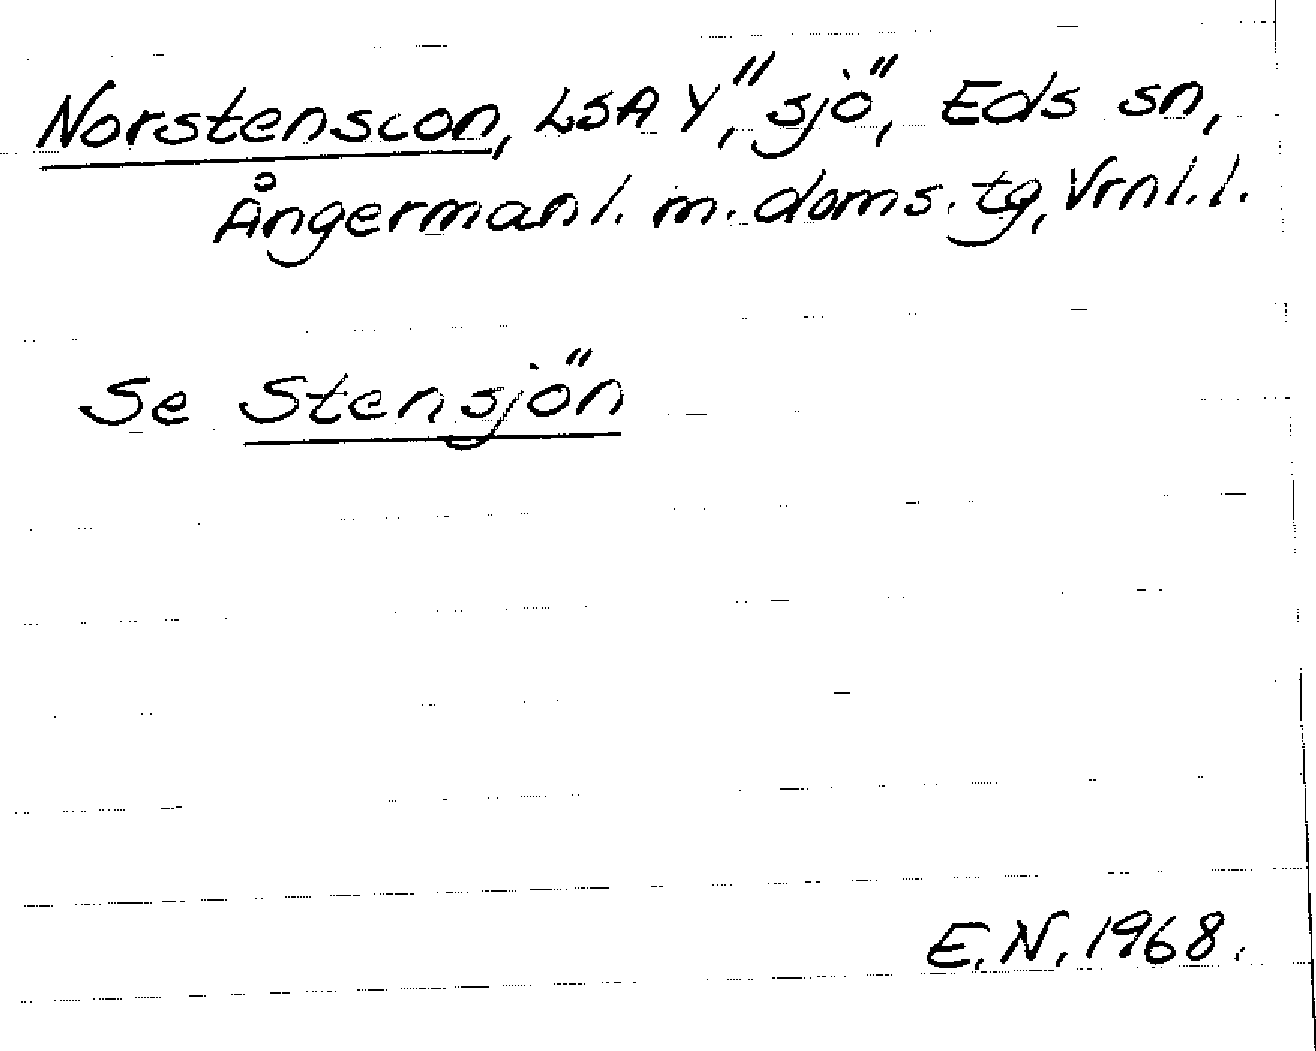 Norstenscon, LSA Y, "sjö", Eds sn,
Ångermanl. m. doms. tg, Vrnl.l.
Se Stensjön
E.N. 1968.